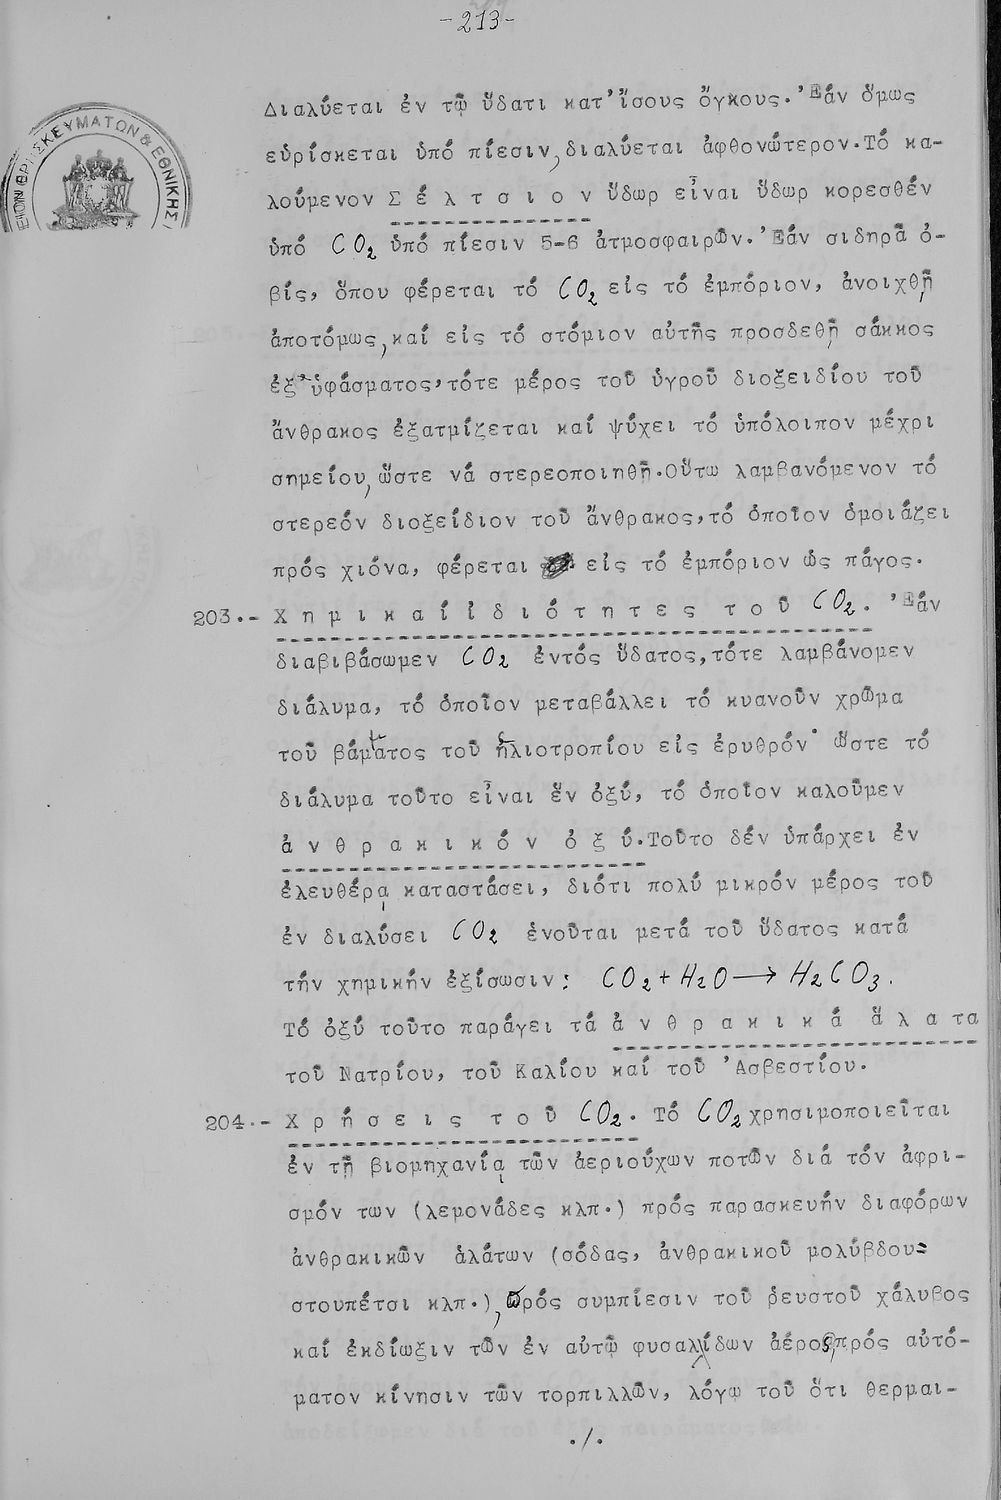 -213-
ΕΙΟΝ ΘΡΗΣΚΕΥΜΑΤΩΝ & ΕΘΝΙΚΗΣ
Διαλύεται ἐν τῷ ὕδατι κατ' ἴσους ὄγκους. 'Εάν ὅμως
εὑρίσκεται ὑπό πίεσιν, διαλύεται ἀφθονώτερον. Τό κα-
λούμενον Σ έ λ τ σ ι ο ν ὕδωρ εἶναι ὕδωρ κορεσθέν
ὑπό CO2 ὑπό πίεσιν 5-6 ἀτμοσφαιρῶν. 'Εάν σιδηρᾶ ὀ-
βίς, ὅπου φέρεται τό CO2 εἰς τό ἐμπόριον, ἀνοιχθῇ
ἀποτόμως, καί εἰς τό στόμιον αὐτῆς προσδεθῇ σάκκος
ἐξ ὑφάσματος, τότε μέρος τοῦ ὑγροῦ διοξειδίου τοῦ
ἄνθρακος ἐξατμίζεται καί ψύχει τό ὑπόλοιπον μέχρι
σημείου, ὥστε νά στερεοποιηθῇ. Οὕτω λαμβανόμενον τό
στερεόν διοξείδιον τοῦ ἄνθρακος, τό ὁποῖον ὁμοιάζει
πρός χιόνα, φέρεται εἰς τό ἐμπόριον ὡς πάγος.
203.- Χ η μ ι κ α ί ἰ δ ι ό τ η τ ε ς τ ο ῦ CO2. 'Εάν
διαβιβάσωμεν CO2 ἐντός ὕδατος, τότε λαμβάνομεν
διάλυμα, τό ὁποῖον μεταβάλλει τό κυανοῦν χρῶμα
τοῦ βάμματος τοῦ ἡλιοτροπίου εἰς ἐρυθρόν· ὥστε τό
διάλυμα τοῦτο εἶναι ἕν ὀξύ, τό ὁποῖον καλοῦμεν
ἀ ν θ ρ α κ ι κ ό ν ὀ ξ ύ. Τοῦτο δέν ὑπάρχει ἐν
ἐλευθέρᾳ καταστάσει, διότι πολύ μικρόν μέρος τοῦ
ἐν διαλύσει CO2 ἑνοῦται μετά τοῦ ὕδατος κατά
τήν χημικήν ἐξίσωσιν: CO2 + H2O → H2CO3.
Τό ὀξύ τοῦτο παράγει τά ἀ ν θ ρ α κ ι κ ά ἅ λ α τ α
τοῦ Νατρίου, τοῦ Καλίου καί τοῦ 'Ασβεστίου.
204.- Χ ρ ή σ ε ι ς τ ο ῦ CO2. Τό CO2 χρησιμοποιεῖται
ἐν τῇ βιομηχανίᾳ τῶν ἀεριούχων ποτῶν διά τόν ἀφρι-
σμόν των (λεμονάδες κλπ.) πρός παρασκευήν διαφόρων
ἀνθρακικῶν ἁλάτων (σόδας, ἀνθρακικοῦ μολύβδου=
στουπέτσι κλπ.), πρός συμπίεσιν τοῦ ῥευστοῦ χάλυβος
καί ἐκδίωξιν τῶν ἐν αὐτῷ φυσαλίδων ἀέρος, πρός αὐτό-
ματον κίνησιν τῶν τορπιλλῶν, λόγῳ τοῦ ὅτι θερμαι-
./.